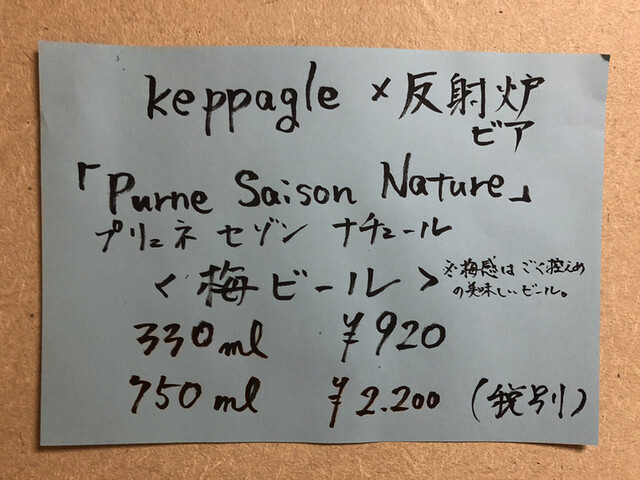 keppagle × 反射炉
ビア
「Purne Saison Nature」
プリュネ セゾン ナチュール
〈梅ビール〉
※梅感はごく控えめ
の美味しいビール。
330ml ¥920
750ml ¥2.200 (税別)